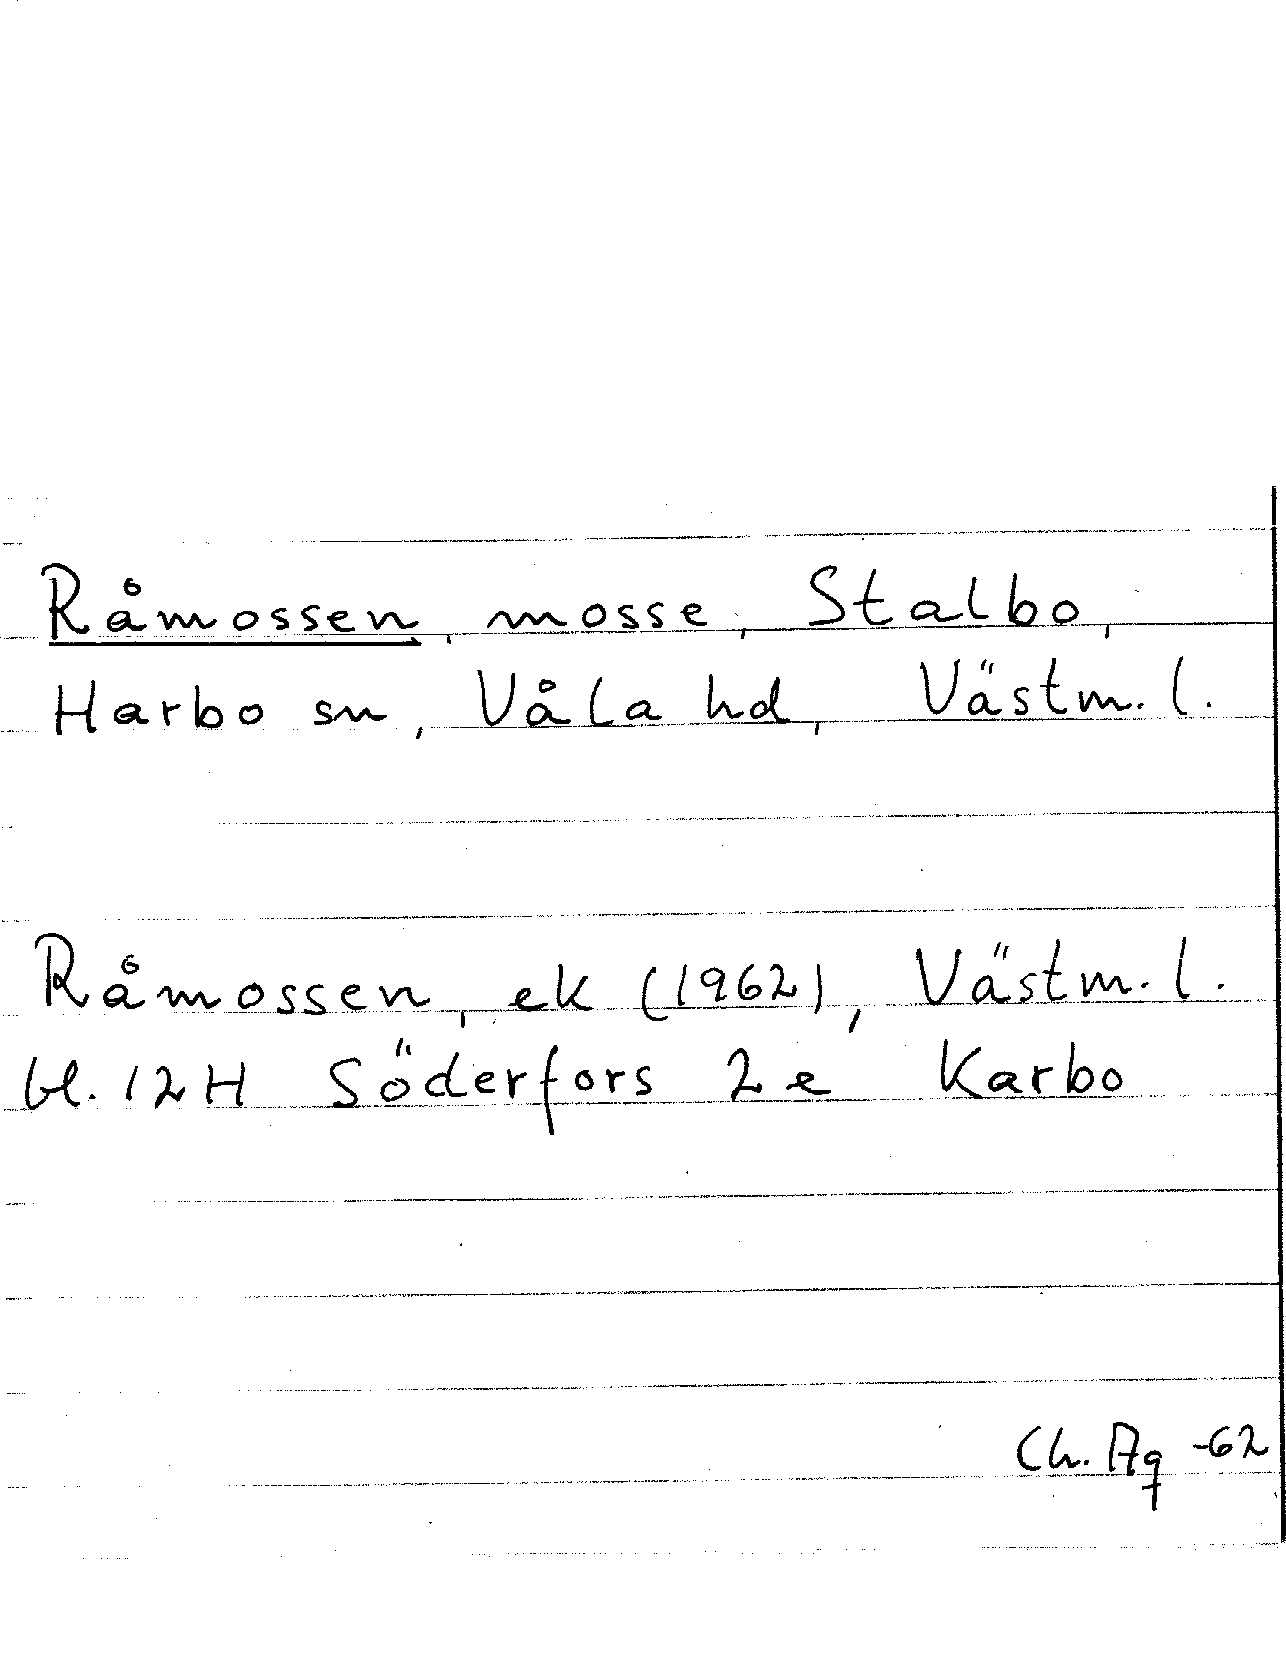 Råmossen, mosse, Stalbo,
Harbo sn, Våla hd, Västm. l.
Råmossen, ek (1962), Västm. l.
bl. 12H Söderfors 2e Karbo
Ch. Aq -62